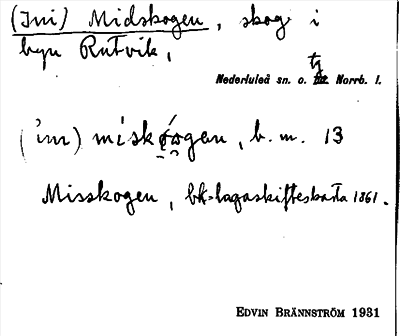 (Ini) Midskogen, skog i
byn Rutvik,
Nederluleå sn. o. tg Norrb. l.
(ìnı) mìskógen, b. m. 13
Misskogen, bk = lagaskifteskarta 1861.
EDVIN BRÄNNSTRÖM 1931